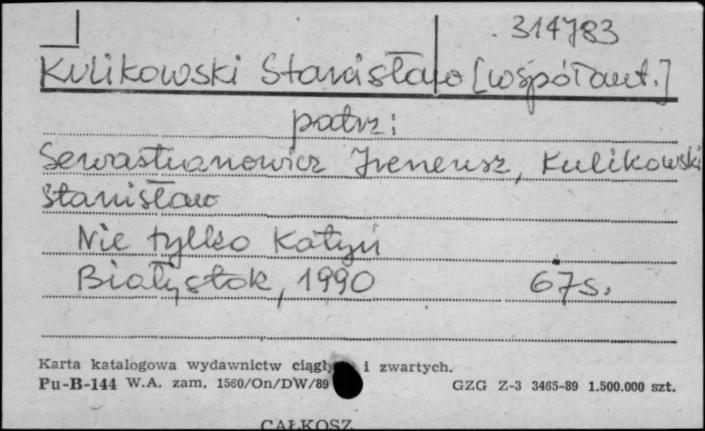 314783
Kulikowski Stanisław [współaut.]
patrz:
Sewastianowicz Ireneusz, Kulikowski
Stanisław
Nie tylko Katyń
Białystok, 1990 67s.
Karta katalogowa wydawnictw ciągły i zwartych.
Pu-B-144 W.A. zam. 1560/On/DW/89 GZG Z-3 3465-89 1.500.000 szt.
CAŁKOSZ